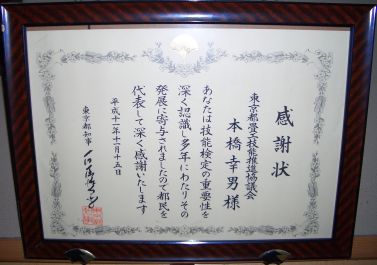 感謝状
東京都畳工技能推進協議会
本橋幸男様
あなたは技能検定の重要性を
深く認識し多年にわたりその
発展に寄与されましたので都民を
代表して深く感謝いたします
平成十一年十一月十五日
東京都知事 石原慎太郎